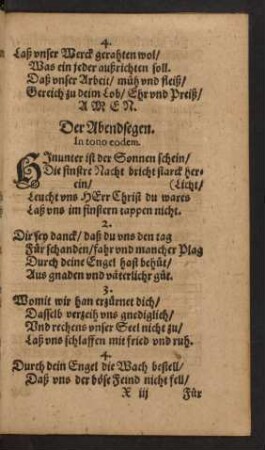 4.
Laß vnser Werck gerahten wol/
Was ein jeder außrichten soll.
Daß vnser Arbeit/ müh vnd fleiß/
Gereich zu deim Lob/ Ehr vnd Preiß/
A M E N.
Der Abendsegen.
In tono eodem.
HInunter ist der Sonnen schein/
Die finstre Nacht bricht starck her-
ein/ (Licht/
Leucht vns HErr Christ du wares
Laß vns im finstern tappen nicht.
2.
Dir sey danck/ daß du vns den tag
Für schanden/ fahr vnd mancher Plag
Durch deine Engel hast behüt/
Aus gnaden vnd väterlichr güt.
3.
Womit wir han erzürnet dich/
Dasselb verzeih vns gnediglich/
Vnd rechens vnser Seel nicht zu/
Laß vns schlaffen mit fried vnd ruh.
4.
Durch dein Engel die Wach bestell/
Daß vns der böse Feind nicht fell/
X iij Für